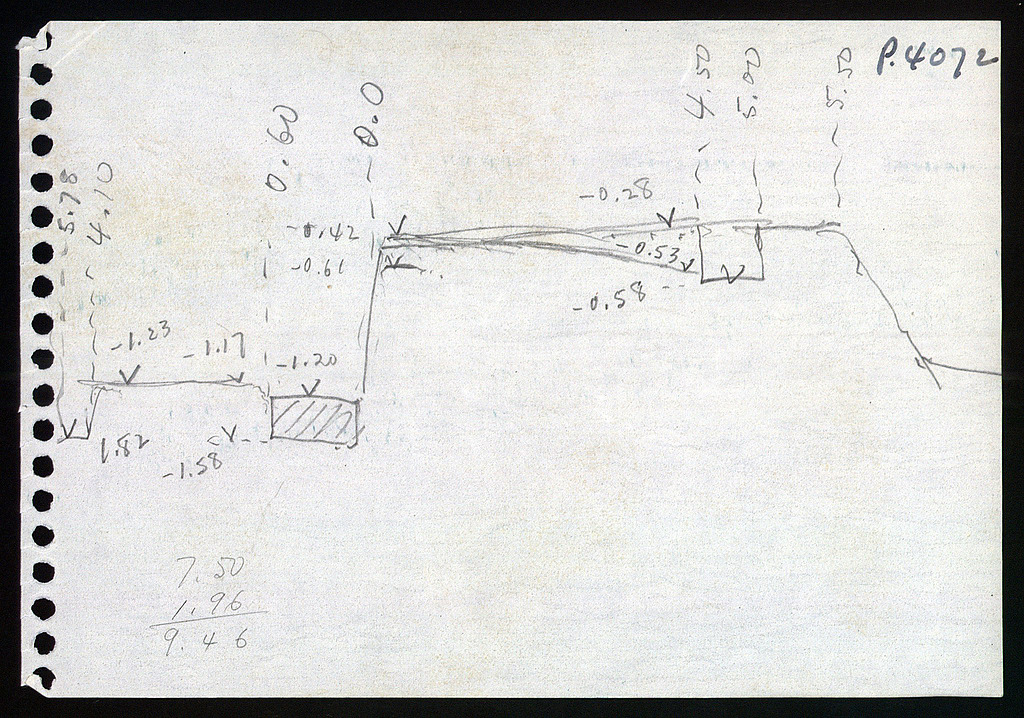 P.4072
5.78
4.10
0.60
0.0
4.50
5.00
5.50
-0.28
-0.42
-0.53
-0.61
-0.58
-1.23
-1.17
-1.20
1.82
-1.58
7.50
1.96
9.46